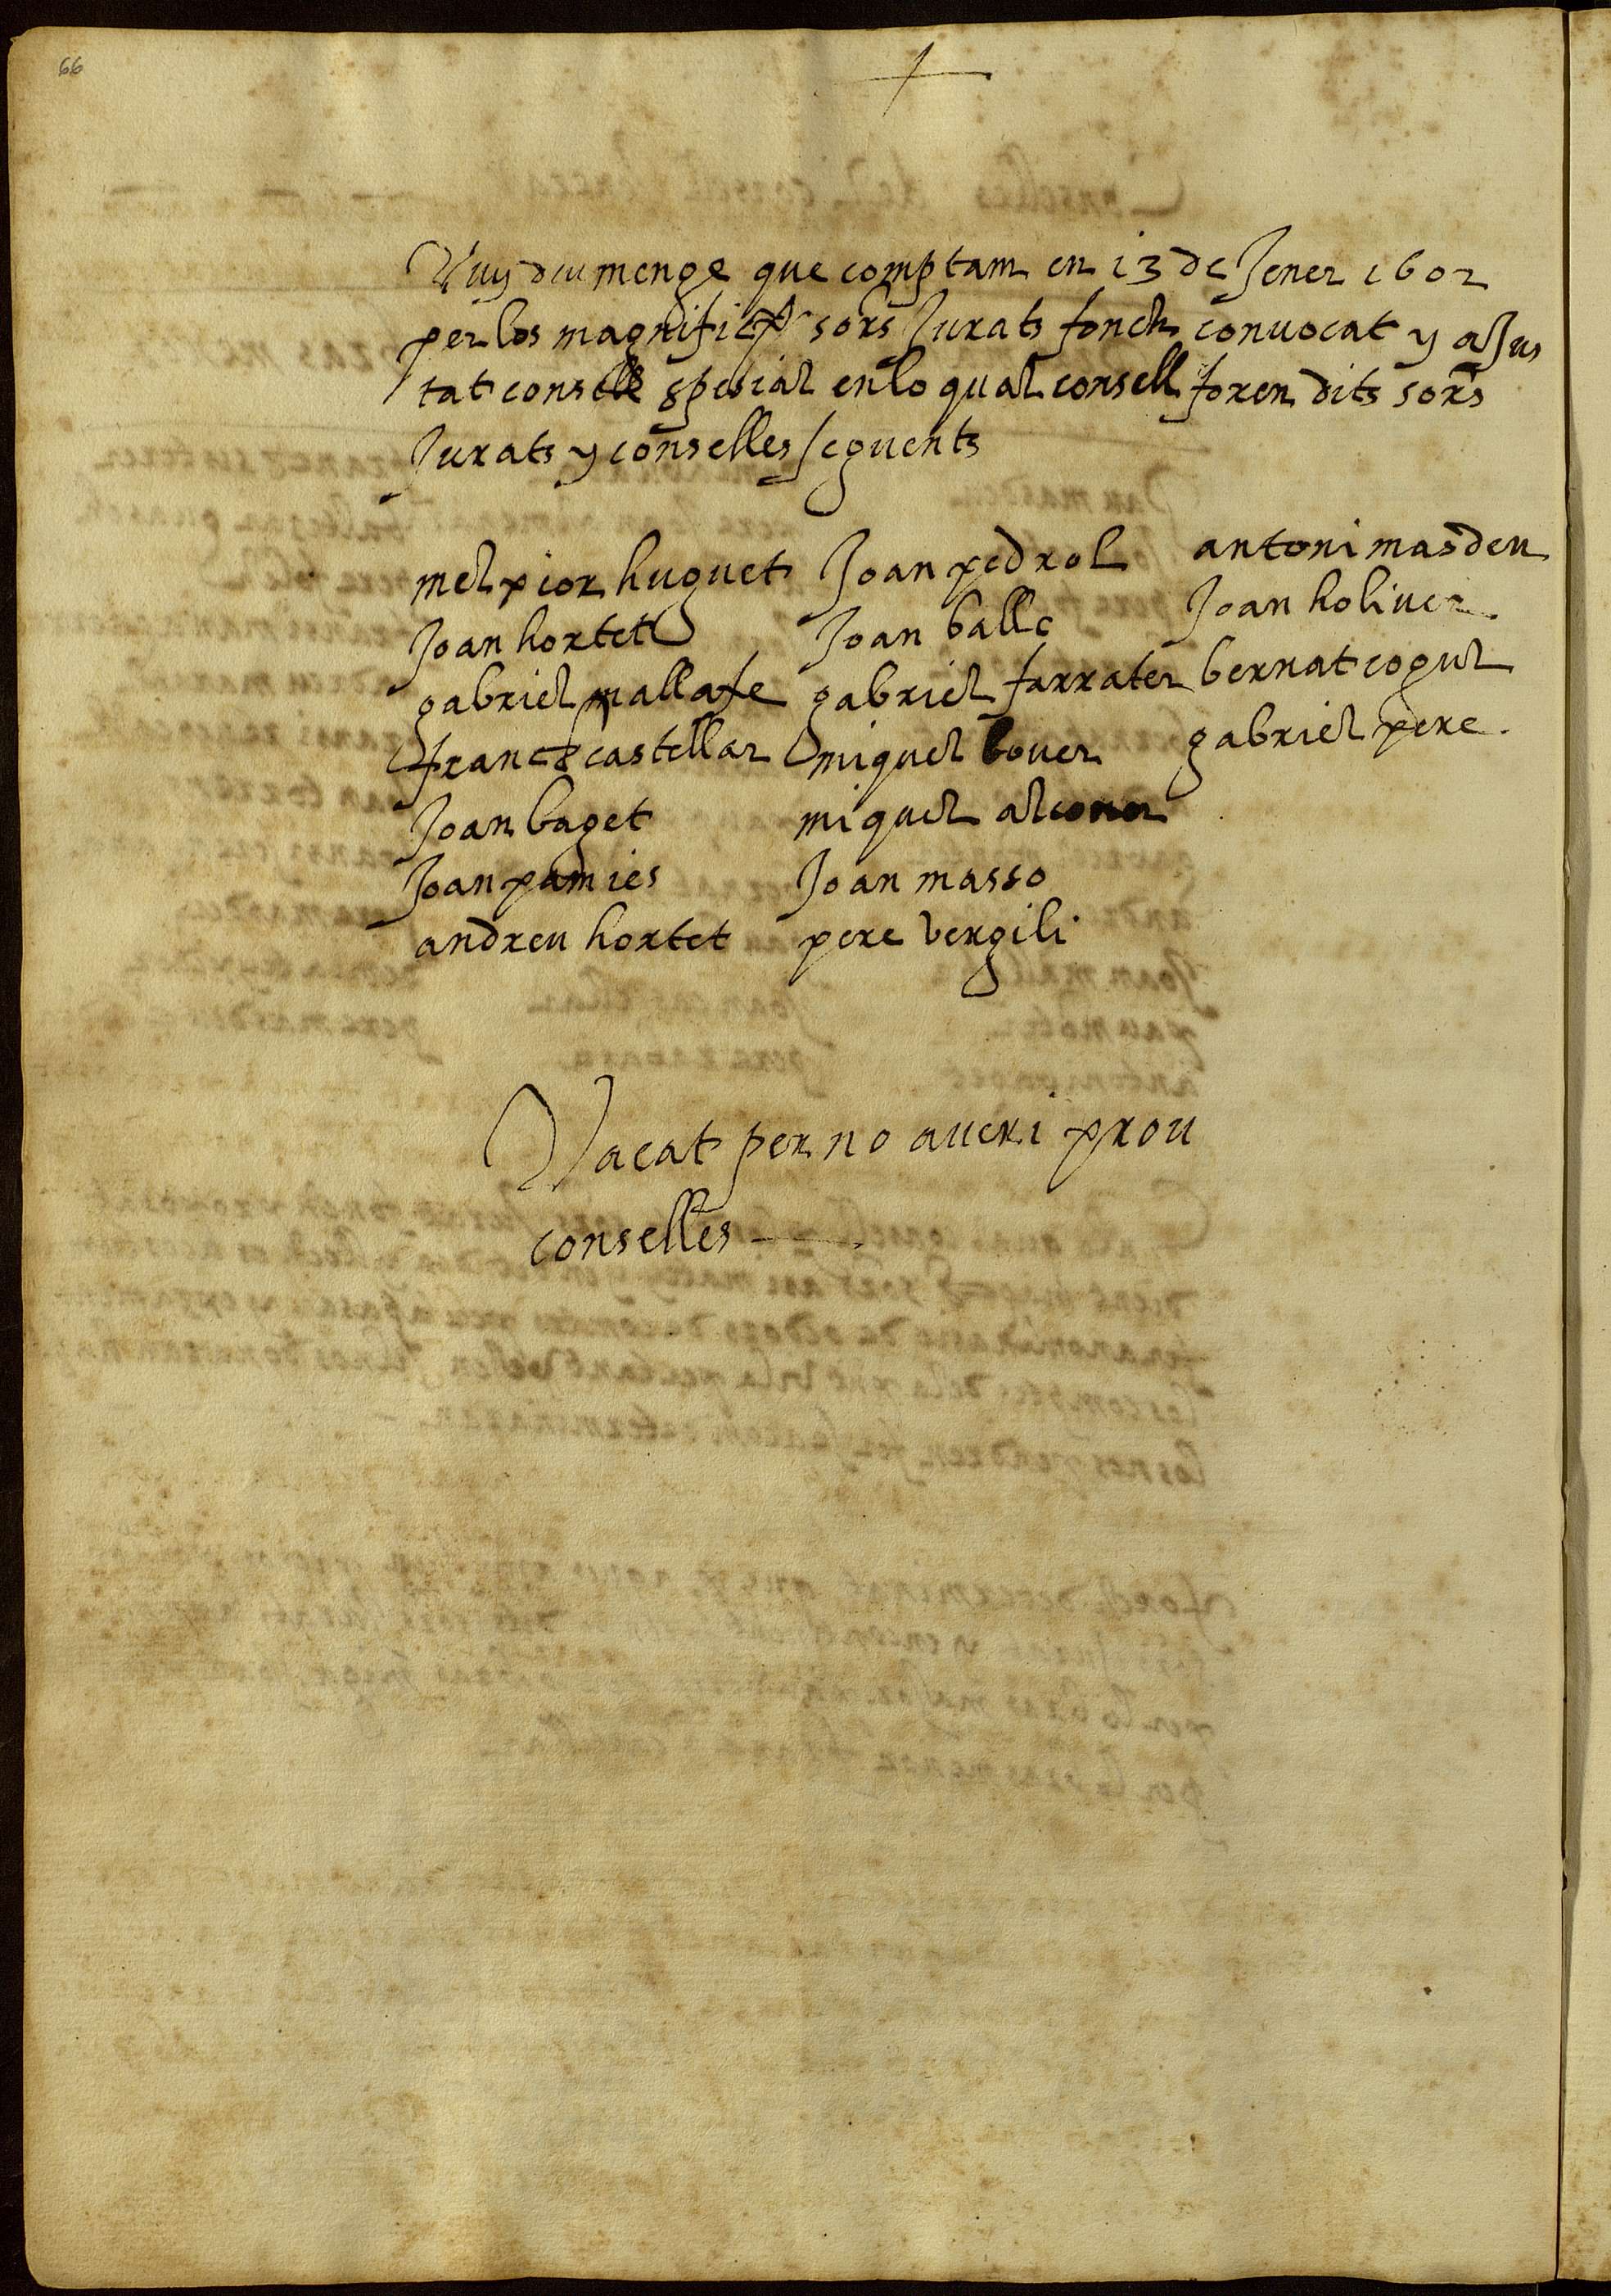 66
Vuy diumenge que comptam en 13 de Jener 1602
per los magnifichs sors Jurats fonch convocat y aJus
tat consell special en lo qual consell foren dits sors
Jurats y conselles seguents
melxior huguet Joan pedrol antoni masdeu
Joan hortet Joan balle Joan holiver
gabriel mallafe gabriel farrater bernat cogul
franc castellar miquel bover gabriel pere
Joan baget miquel alcover
Joan pamies Joan masso
andreu hortet pere vergili
Vacat per no averi prou
conselles